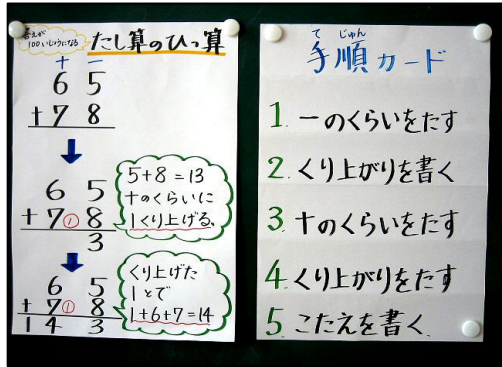 答えが
100いじょうになる
たし算のひっ算
十 一
6 5
+7 8
6 5
+7① 8
3
5+8=13
十のくらいに
1くり上げる。
6 5
+7① 8
1 4 3
くり上げた
1とで
1+6+7=14
て じゅん
手順カード
1. 一のくらいをたす
2. くり上がりを書く
3. 十のくらいをたす
4. くり上がりをたす
5. こたえを書く